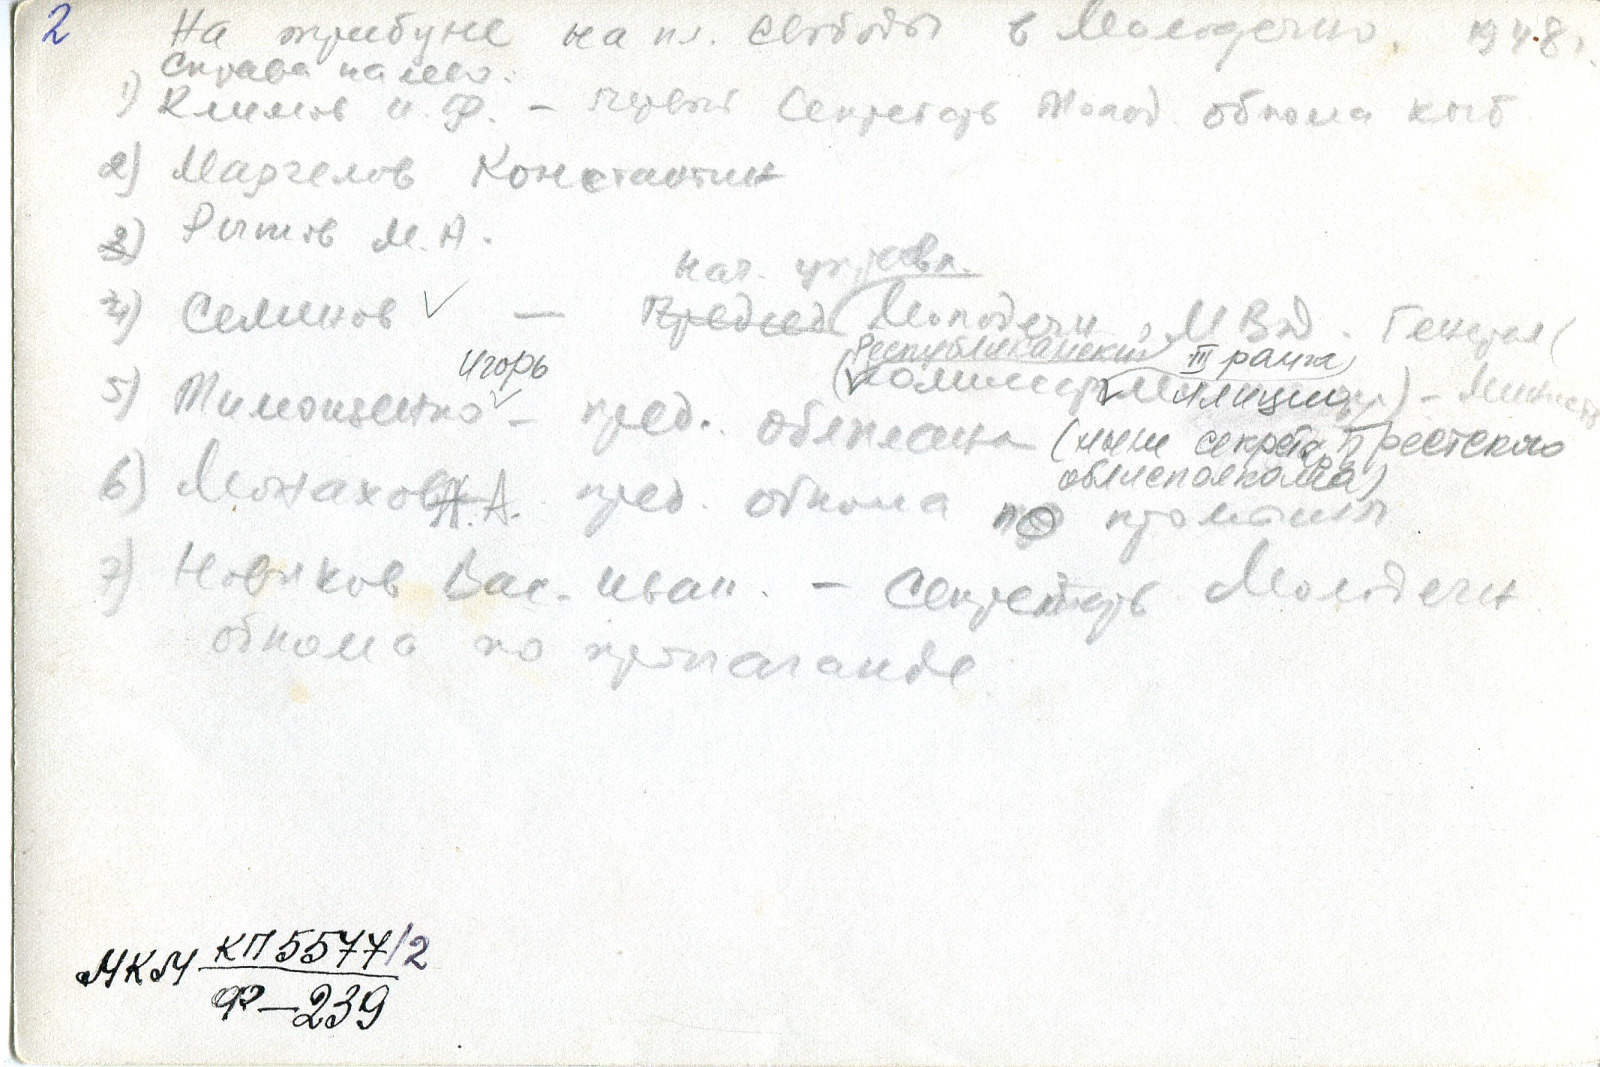 2
На трибуне на пл. Свободы в Молодечно. 1948 г.
Справа налево:
1) Климов И. Ф. – первый Секретарь Молод. обкома КПБ
2) Маргелов Константин
3) Рыжов М. А.
нач. управл.
4) Семёнов – Председ Молодечн. МВД. Генерал (
Республиканский III ранга
комиссар милиции) –
Игорь
5) Тимощенко – пред. облплана (ныне секретарь Брестского
облисполкома)
6) Монахов А. А. пред. обкома по
7) Новиков Вас. Иван. – Секретарь Молодечн
обкома по пропаганде
МКМ КП 5577/2
Ф–239